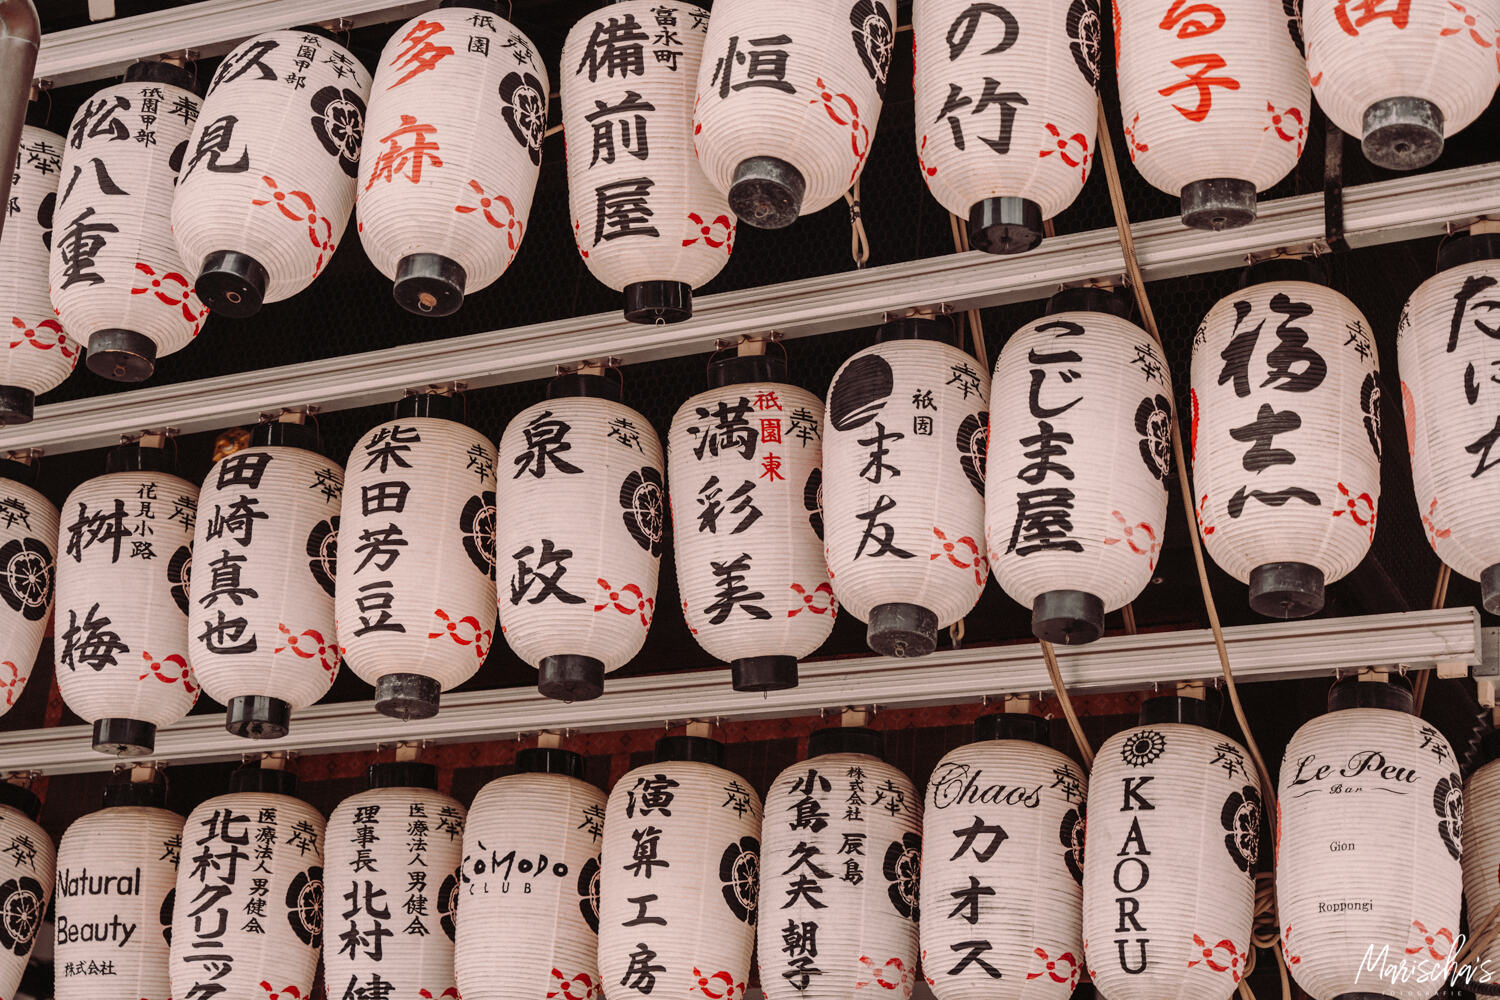 奉
祇園甲部
松八重
奉
祇園甲部
玖見
奉
祇園
多麻
富永町
備前屋
恒
の竹
る子
奉
奉
花見小路
桝梅
奉
田崎真也
奉
柴田芳豆
奉
泉政
奉
祇園東
満彩美
奉
祇園
末友
奉
こじま屋
奉
福志
奉
奉
Natural
Beauty
株式会社
奉
医療法人男健会
北村クリニック
奉
医療法人男健会
理事長 北村 健
奉
CòMODO
CLUB
奉
演算工房
奉
株式会社 辰島
小島久夫 朝子
奉
Chaos
カオス
奉
KAORU
奉
Le Peu
Bar
Gion
Roppongi
Marischa's
FOTOGRAFIE